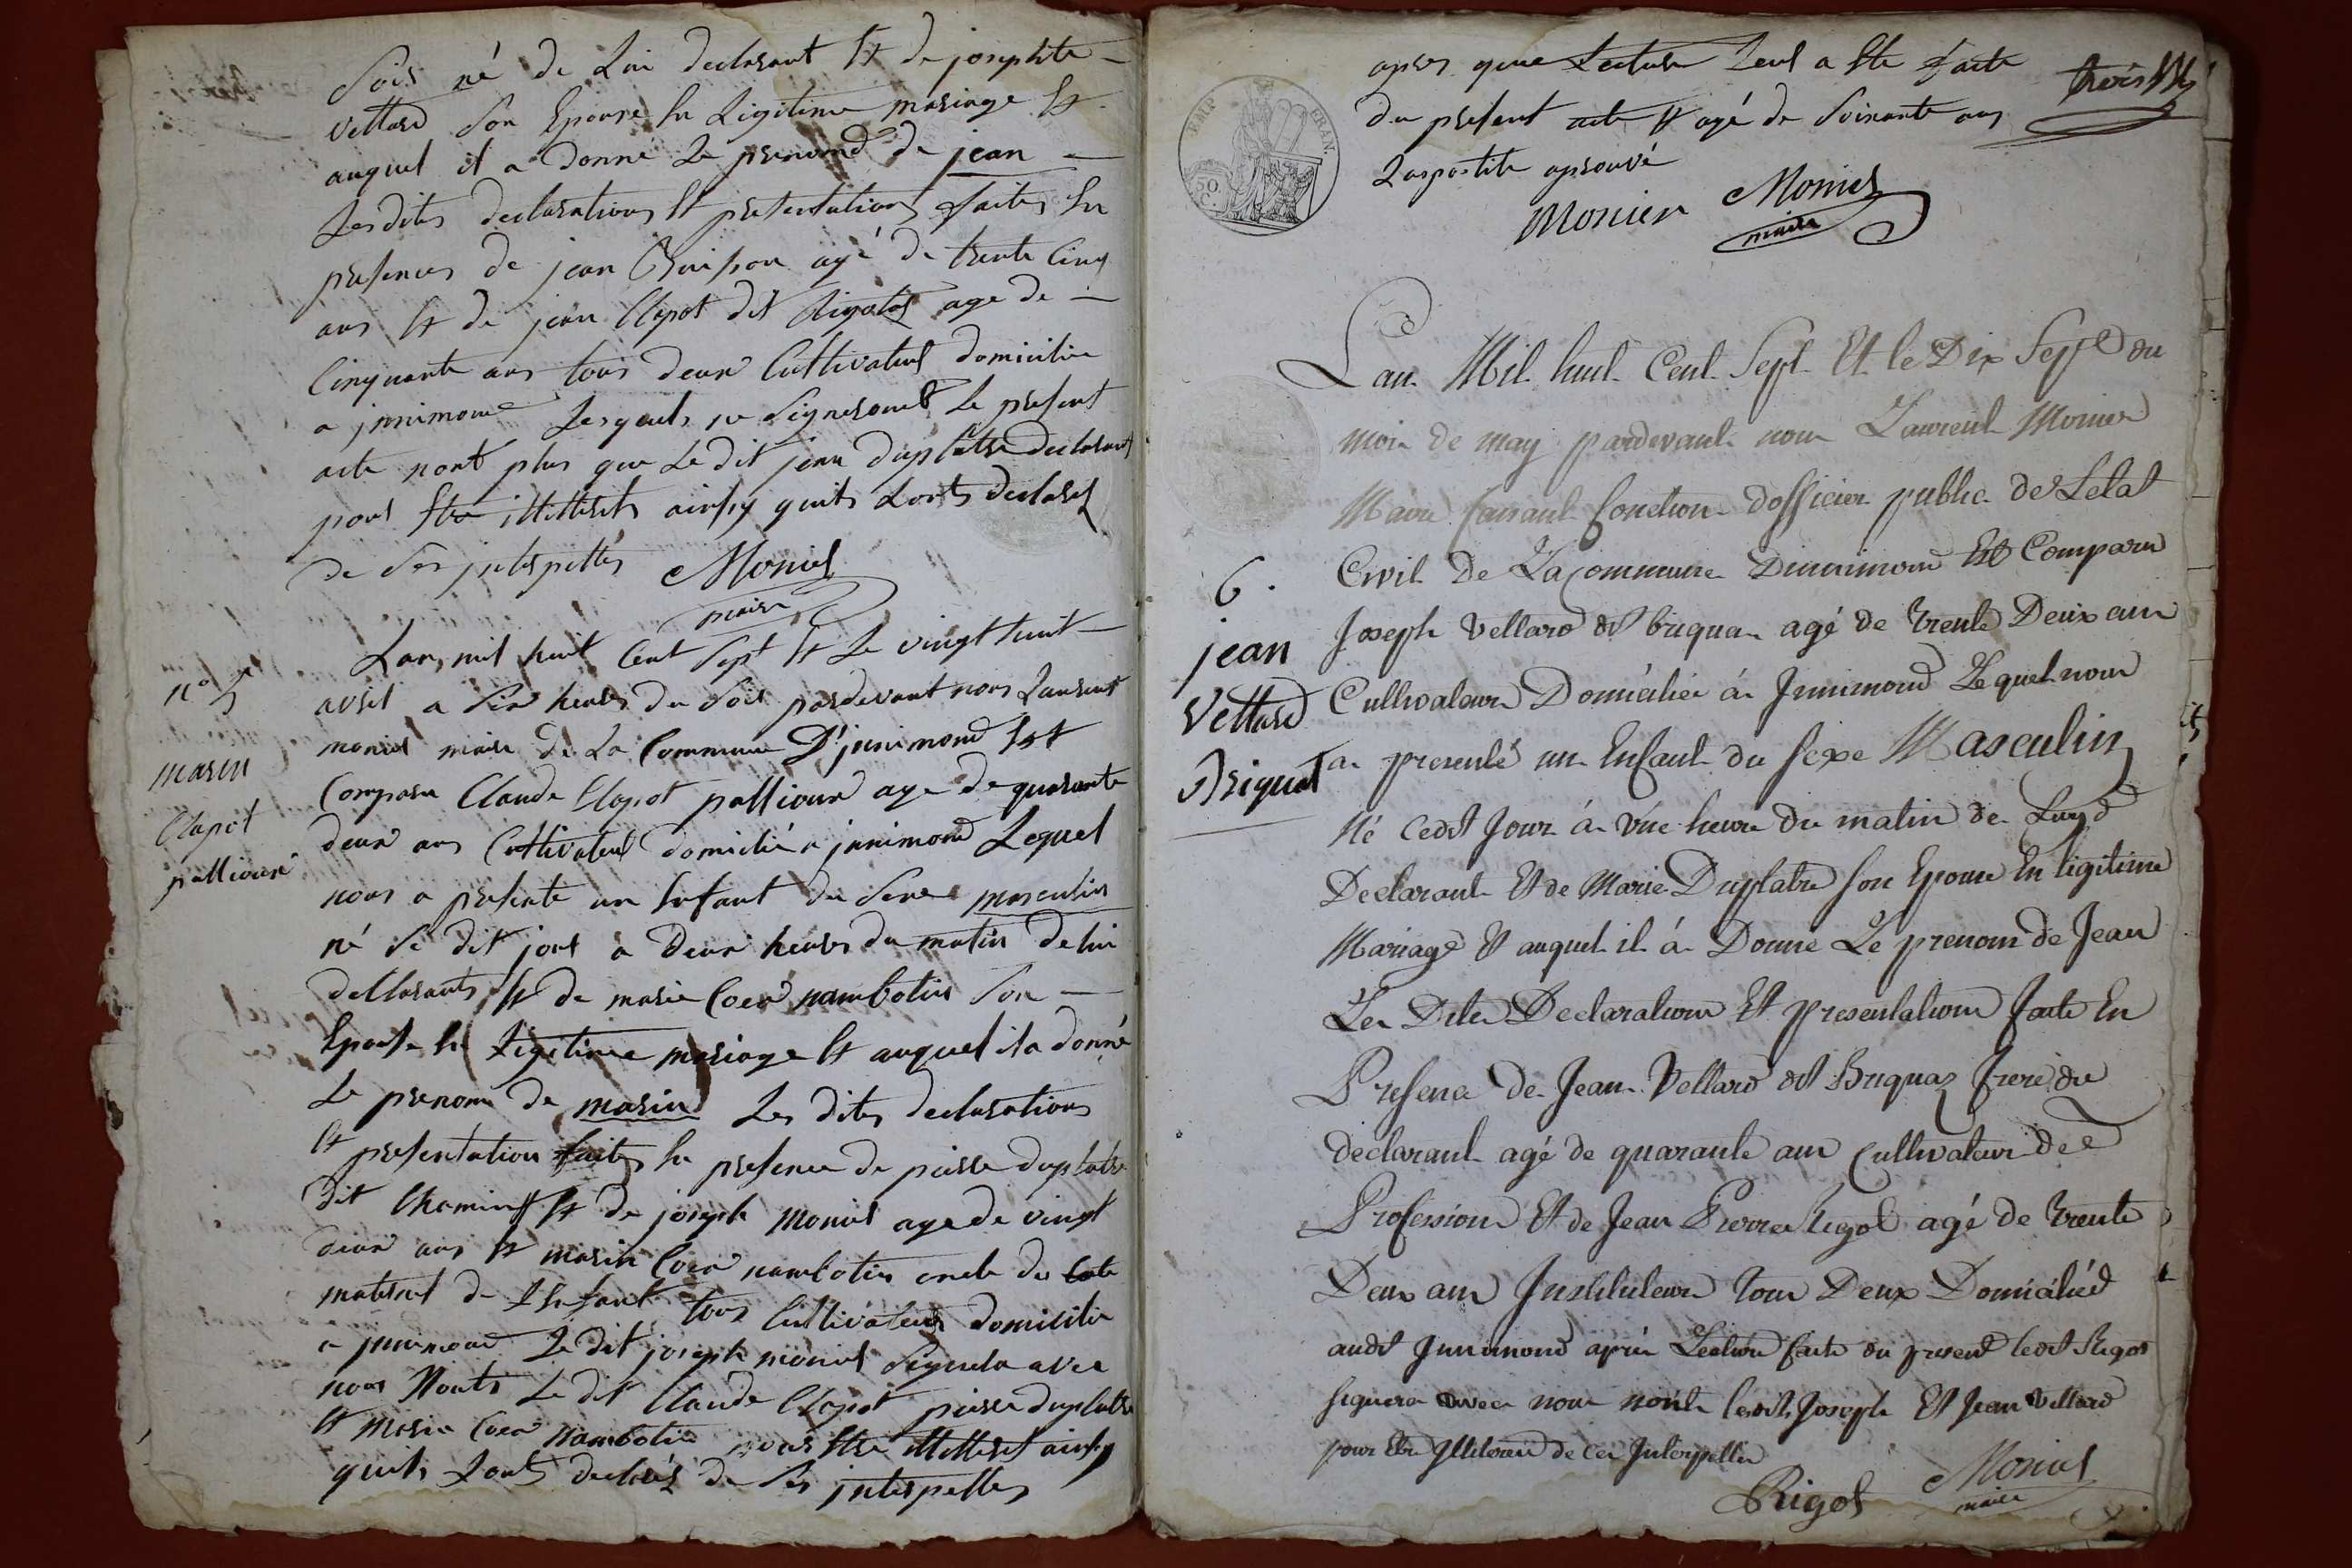 Soir né de Lui declarant Et de josephte
Vettard Son Epouse En Ligitime mariage Et
auquel il a donné Le prenomd de jean
Lesdites declarations Et presentations faites En
presences de jean Buisson agé de trente Cinq
ans Et de jean Clapot dit Rigolot age de
Cinquante ans tous deux Cultivateurs domicilie
a jnnimond Lesquels ne Signeronts Le present
acte nont plus que Le dit jean duplattre declarant
pour Etre jllitterets ainsy quils Lonts declarez
de Ses jnterpettés Monier
maire
n° 5
Lan mil huit Cent Sept Et Le vingt huit
avril a Six heures du Soir pardevant nous Laurent
monier maire de La Commune D'jnnimond Est
marin
Comparu Claude Clapot pallioux age de quarante
Clapot
deux ans Cultivateur domicilié a jnnimond Lequel
pallioux
nous a presenté un Enfant du Sexe masculin
né Se dit jour a Deux heures du matin De lui
decclarants Et de marie Cora nambotin Son
Epouse En Ligitime mariage Et auquel il a donné
Le prenom de marin Les dites declarations
Et presentation faites En presence de pierre duplatre
dit Et de joseph Monier age de vingt
deux ans Et marin Cora nambotin oncle du Cote
maternel de LEnfant tous Cultivateurs domicilie
a jnnimond Le dit joseph monier Signera avec
nous Nonts Le dit Claude Clapot pierre duplattre
Et marin Cora Nambotin pour Etre jllitterest ainsy
quils Lonts declarés de Ses jnterpettes
apres que Lecture Leur a Ete faite
trois
du present acte Et agé de Soixante ans
Lapostile aprouvé
EMP FRAN.
50 C.
Monier Monier
maire
Lan Mil huit Cent Sept Et le Dix Sept du
mois de may pardevant nous Laurent Monier
Maire faisant fonction dofficier public de Letat
6.
Civil de La Commune Dinnimond Est Comparu
jean
Joseph Vettard dit briquaz agé de trente Deux ans
Vettard
Cultivateur Domicilié à Jnnimond Lequel nous
Briquat
a presenté un Enfant du Sexe Masculin
Né Cedit Jour à Une heure du matin de Luy
Declarant Et de Marie Duplatre son Epouse En ligitime
Mariage Et auquel il à Donne Le prenom de Jean
Les Dites Declarations Et presentations faite En
Presence de Jean Vettard dit Briquaz frere du
declarant agé de quarante ans Cultivateur de
Profession Et de Jean Pierre Rigot agé de trente
Deux ans Jnstituteur Tous Deux Domiciliés
audit Jnnimond après Lecture faite du present ledit Rigot
signera avec nous nonts lesdits Joseph Et Jean Vettard
pour Etre Jlliterés de ces Jnterpellés
Rigot Monier
maire